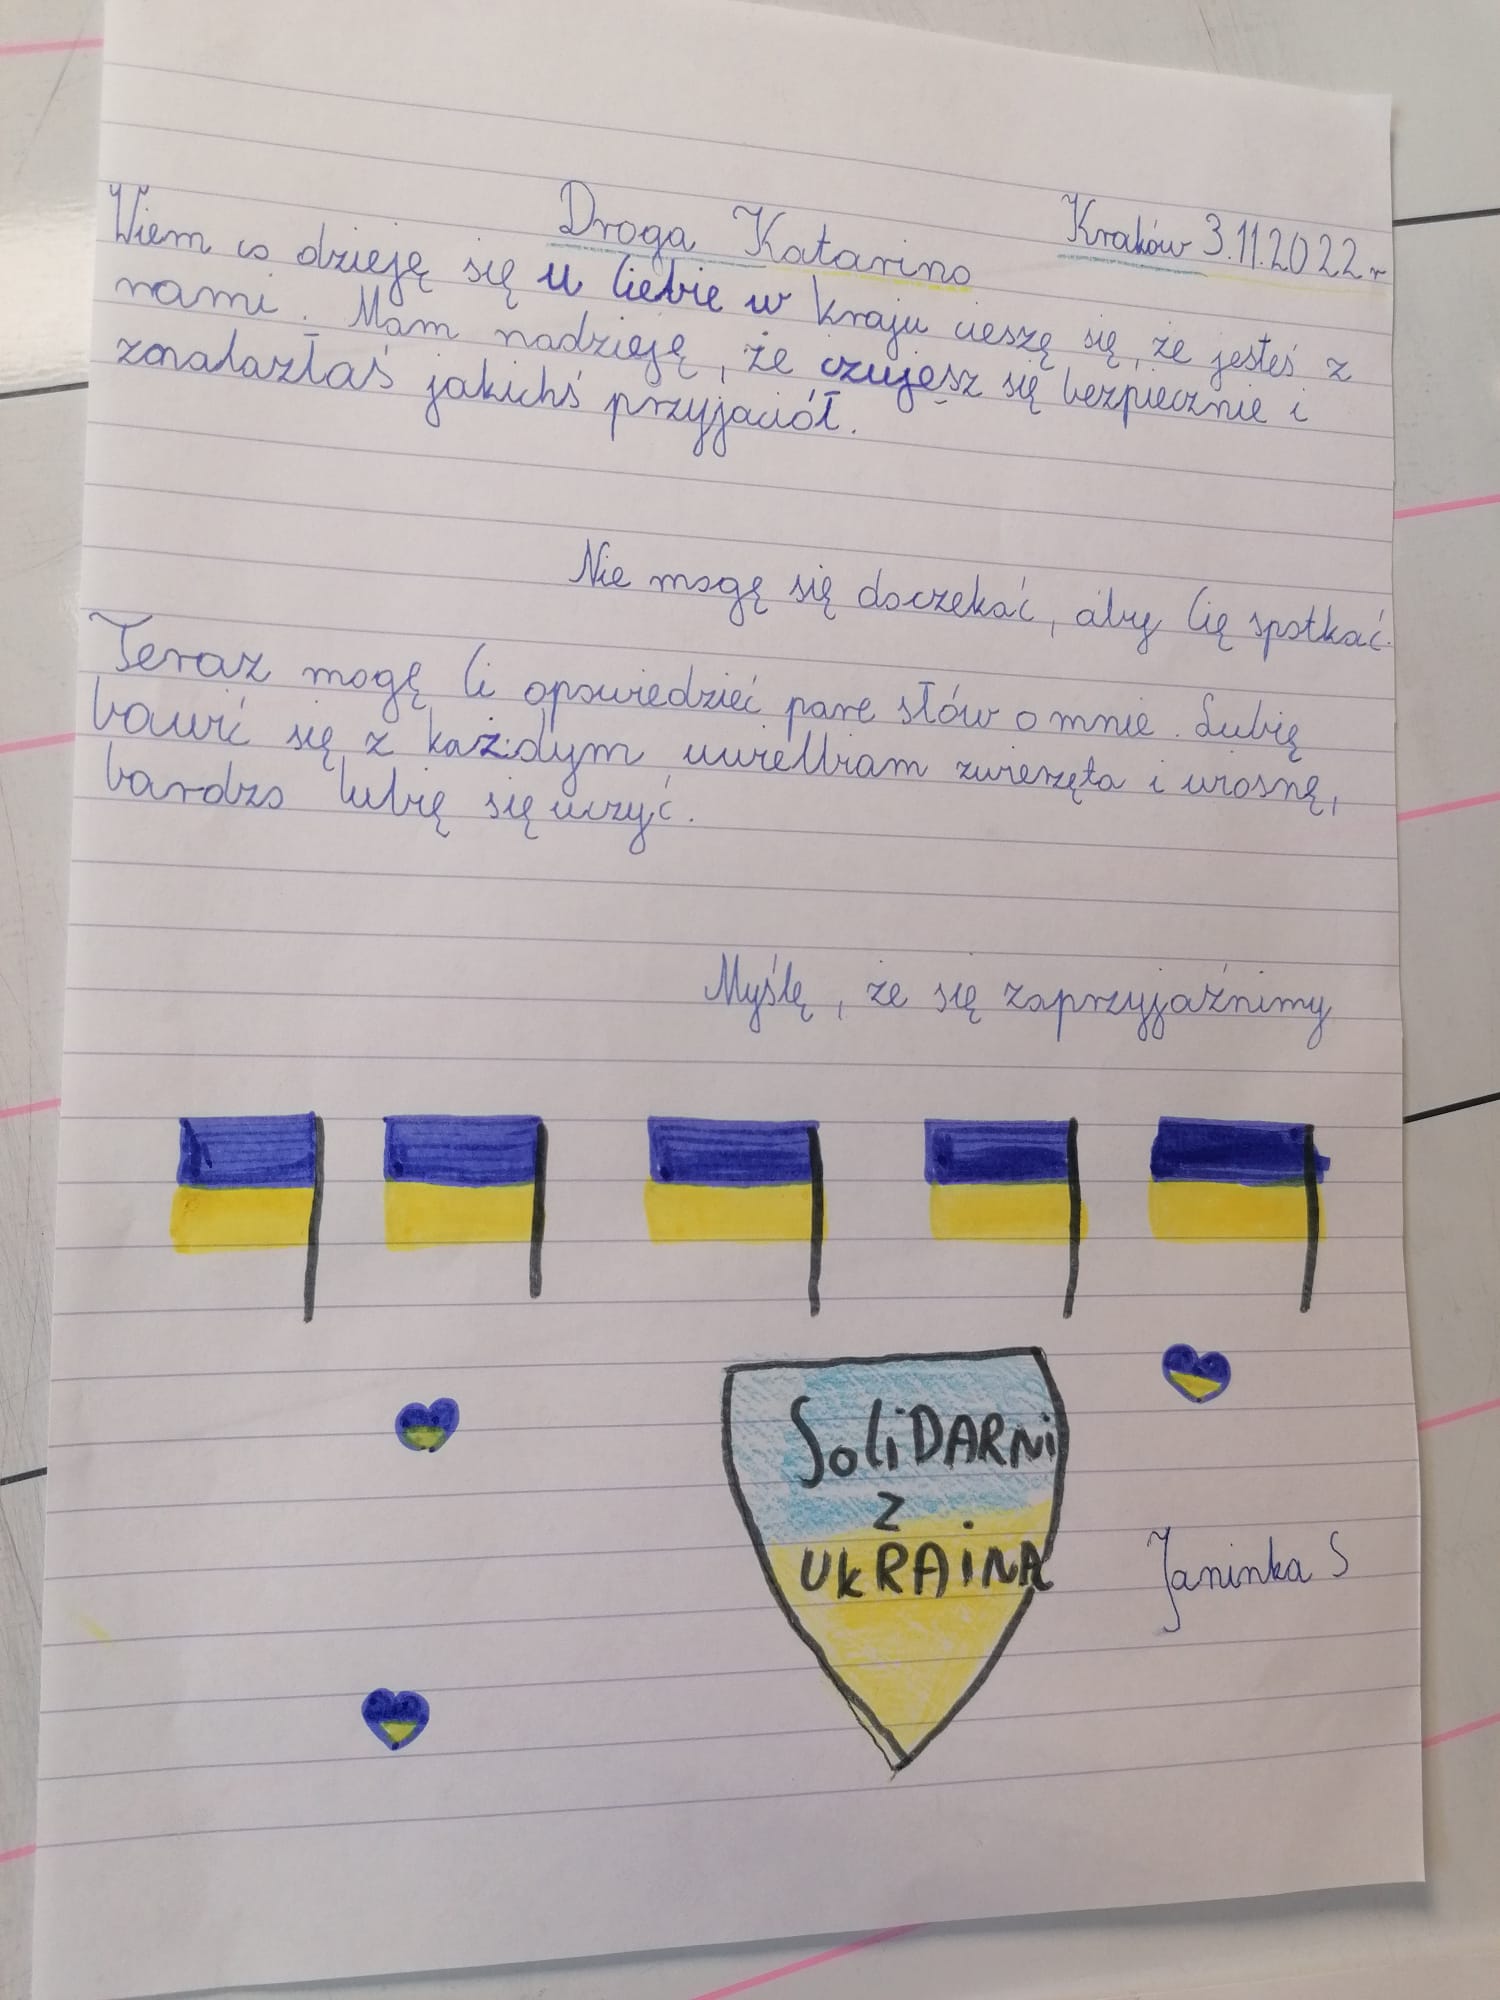 Kraków 3.11.2022 r
Droga Katarino
Wiem co dzieję się u Ciebie w kraju cieszę się, że jesteś z
nami. Mam nadzieję, że czujesz się bezpiecznie i
znalazłaś jakichś przyjaciół.
Nie mogę się doczekać, aby Cię spotkać.
Teraz mogę Ci opowiedzieć parę słów o mnie. Lubię
bawić się z każdym, uwielbiam zwierzęta i wiosnę,
bardzo lubię się uczyć.
Myślę, że się zaprzyjaźnimy
SoliDARNi
Z
UkRAiNĄ
Janinka S